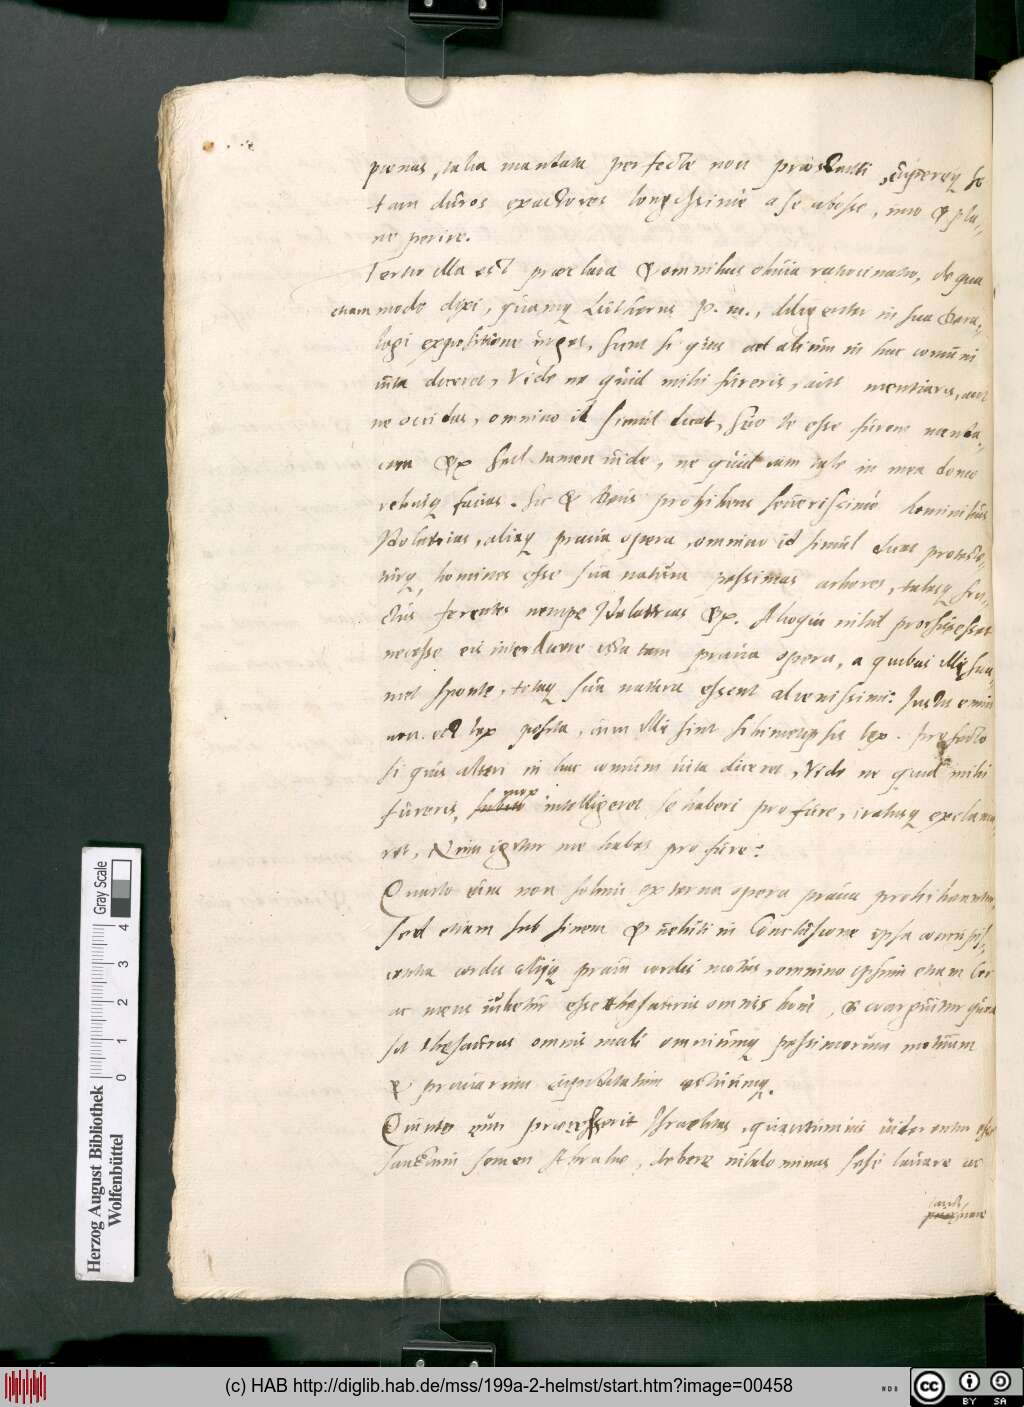 poenas, talia mandata perfecte non praestanti, cupereq se
tam duros exactores longissime a se abesse, imo & pla-
ne perire.
Tertio illa est praeclara & omnibus obuia ratiocinatio, de qua
etiam modo dixi, quamq Lutherus p. m., diligenter in sua Deca-
logi expositione urget, sicut si quis ad alium in hac comuni
uita diceret, Vide ne quid mihi fureris, aut mentiaris, aut
ne occidas, omnino id simul dicat, scio te esse furem menda-
cem &c sed tamen uide, ne quid tam tale in mea domo
rebusq facias. Sic & Deus prohibens seuerissime hominibus
Idolatrias, aliaq praua opera, omnino id simul dicat protest-
turq, homines esse sua natura pessimas arbores, talesq fru-
ctus ferentes nempe Idolatrias &c. Alioqui nihil prorsus esset
necesse eis interdicere ista tam praua opera, a quibus illi sua
met sponte, totaq sua natura essent alienissimi: Iustis enim
non est lex posita, cum illi sint sibimetipsis lex. Profecto
si quis alteri in hac comuni uita diceret, Vide ne quid mihi
fureris, mox intelligeret se haberi pro fure, iratusq exclama-
ret, Num igitur me habes pro fure?
Quarto cum non solum externa opera praua prohibeantur,
sed etiam sub finem & ueluti in Conclusione ipsa concupis-
centia cordis alijq praui cordis motus, omnino ipsum etiam Cor
ac mens iubetur esse thesaurus omnis boni, & coarguitur quod
sit thesaurus omnis mali omniumq pessimorum motuum
& prauarum cupiditatum aestuumq.
Quinto cum praecesserit Israelitas, quantumuis uiderentur esse
Sanctum semen Abrahae, debere nihilo minus sese lauare ac
sancti
Herzog August Bibliothek
Wolfenbüttel
Gray Scale
0 1 2 3 4
(c) HAB http://diglib.hab.de/mss/199a-2-helmst/start.htm?image=00458
cc BY SA